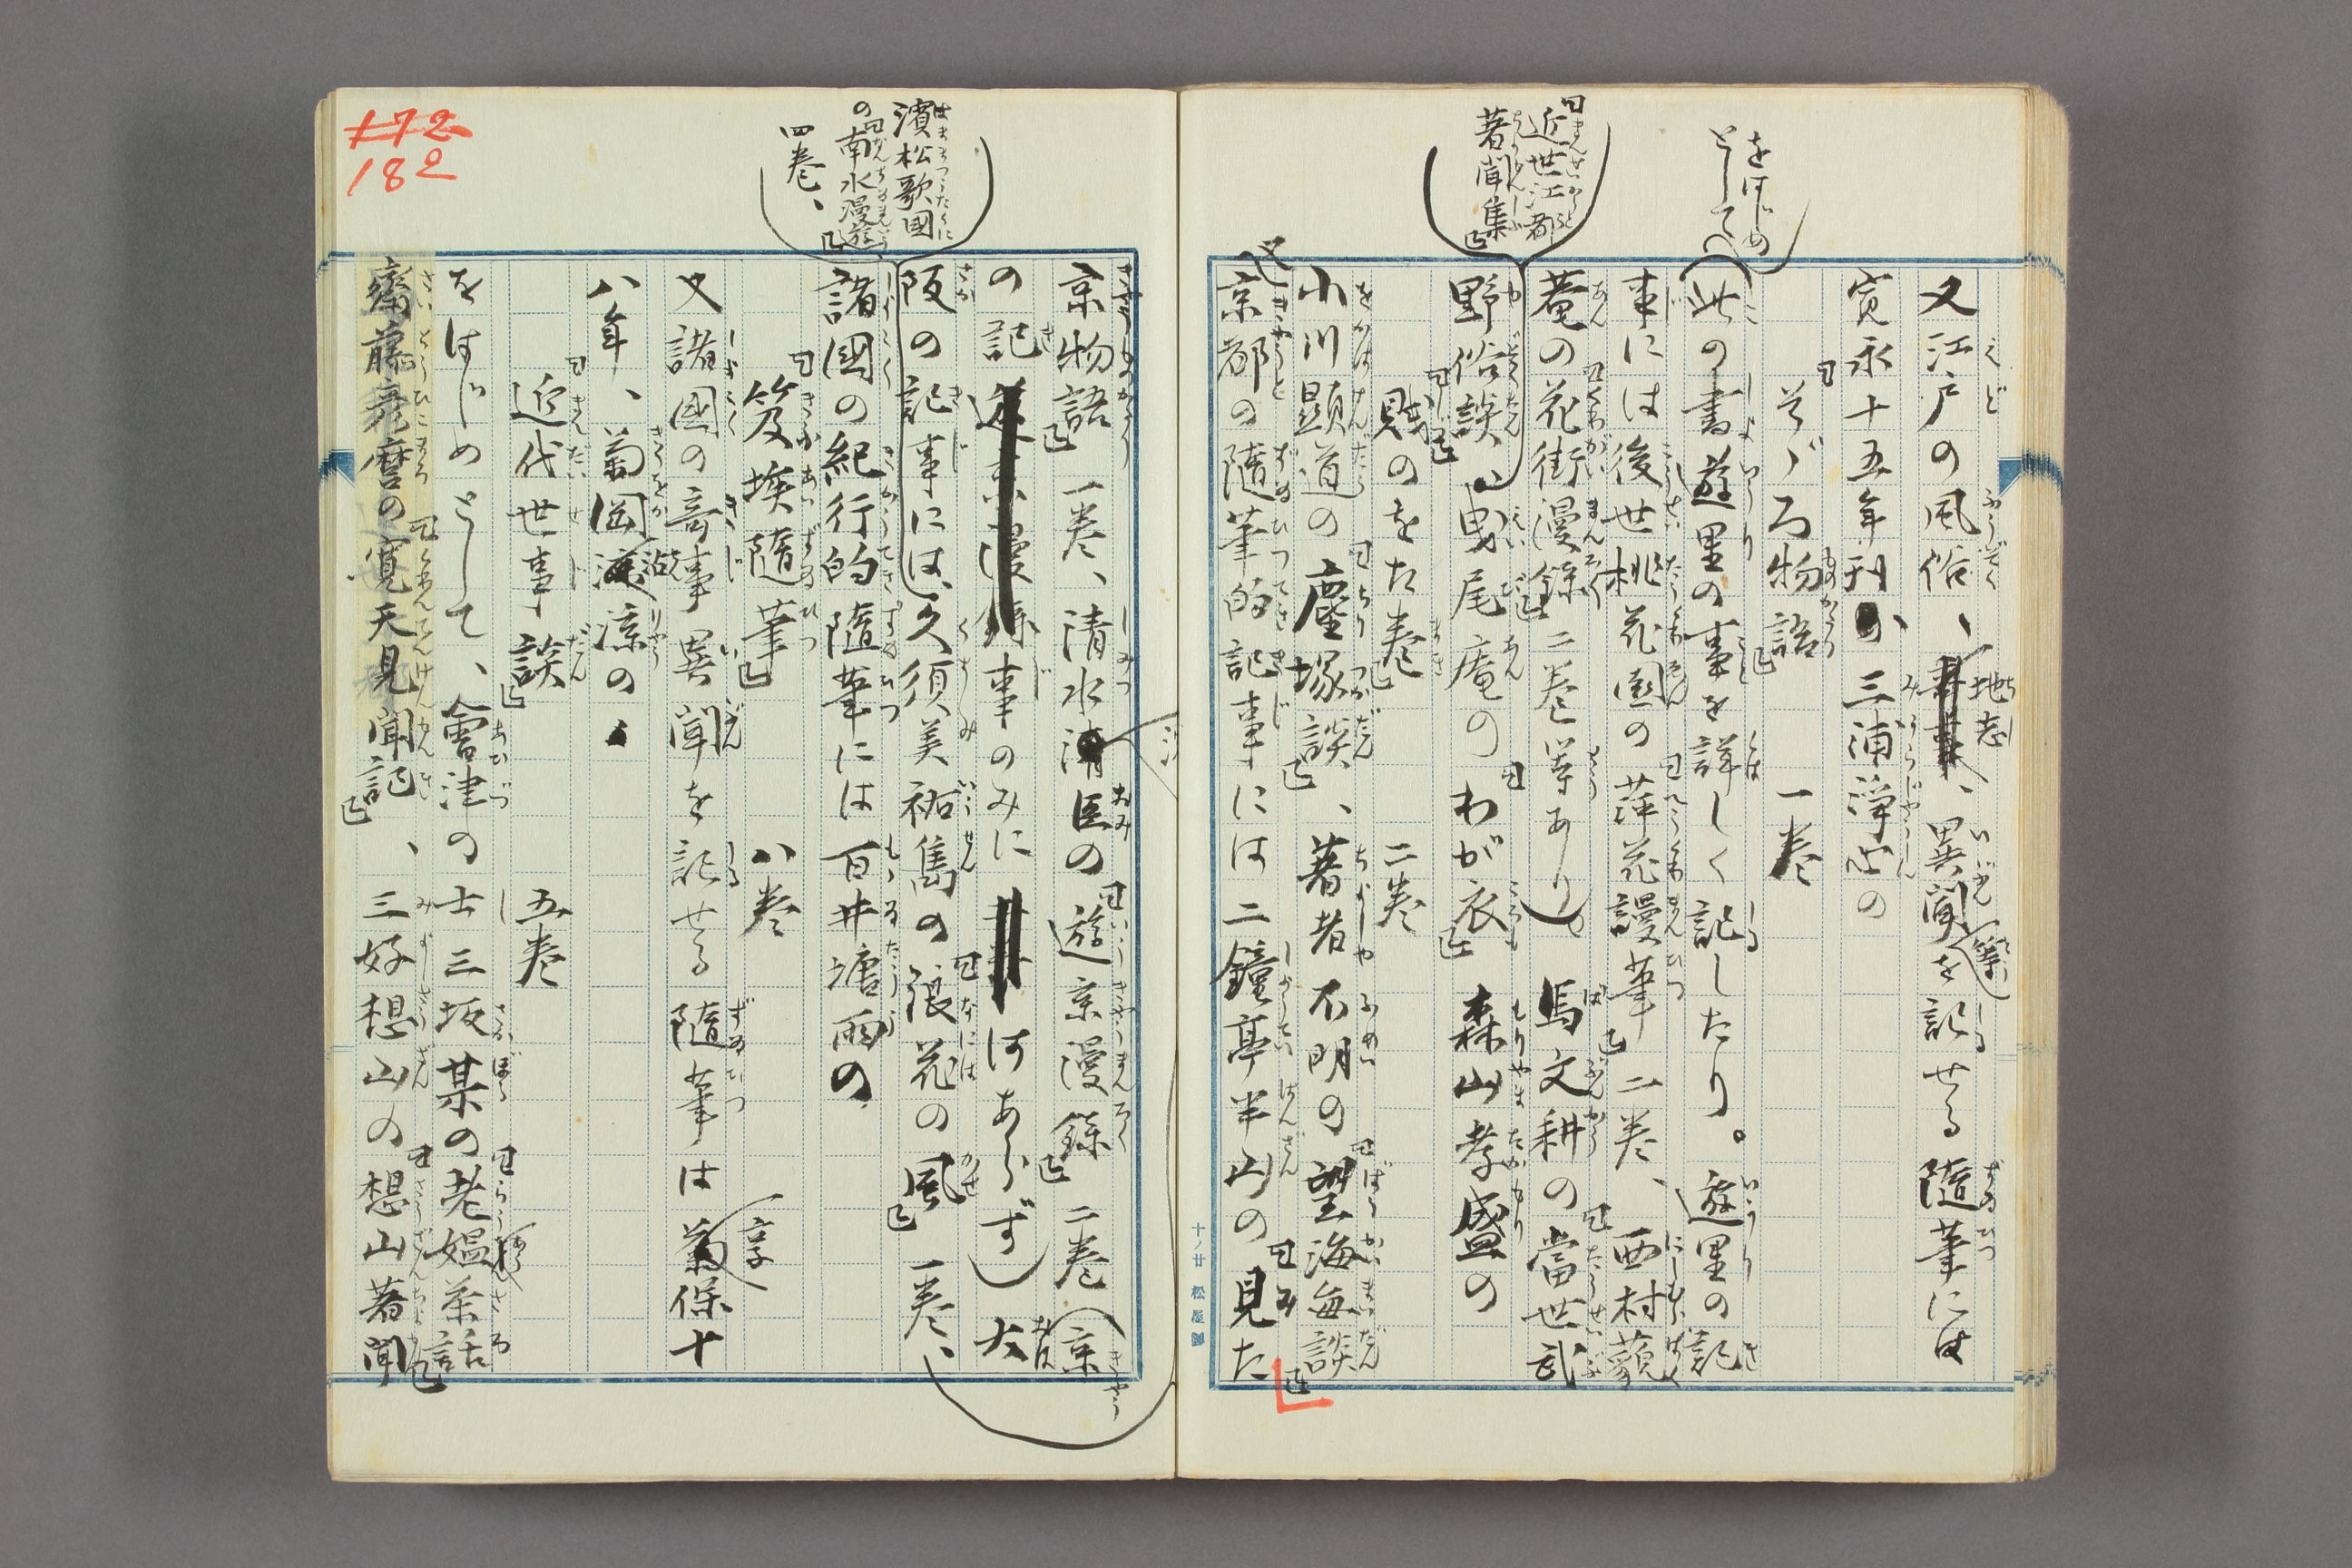 又江戸の風俗、地志、異聞等を記せる隨筆には
寛永十五年刊の三浦浄心の
「そゞろ物語」 一巻
をはじめとして
(此の書遊里の事を詳しく記したり。遊里の記
事には後世桃花園の「萍花漫筆」二巻、西村藐
庵の「花街漫録」二巻等あり)、馬文耕の「當世武
野俗談」、
「近世江都
著聞集」
曳尾庵の「わが衣」 森山孝盛の
「賎のをた巻」 二巻
小川顕道の「塵塚談」、著者不明の「望海毎談」
京都の隨筆的記事には二鐘亭半山の「見た
京物語」一巻、清水清臣の「遊京漫録」二巻(京
の記事のみにはあらず)大
阪の記事には、久須美祐雋の「浪花の風」一巻、
濱松歌國
の「南水漫遊」
四巻、
諸國の紀行的隨筆には百井塘雨の
「笈埃隨筆」 八巻
又諸國の奇事異聞を記せる隨筆は享保十
八年、菊岡沾凉の
「近代世事談」 五巻
をはじめとして、會津の士三坂某の「老媼茶話」
齋藤彦麿の「寛天見聞記」、三好想山の「想山著聞
182
十ノ廿 松屋製